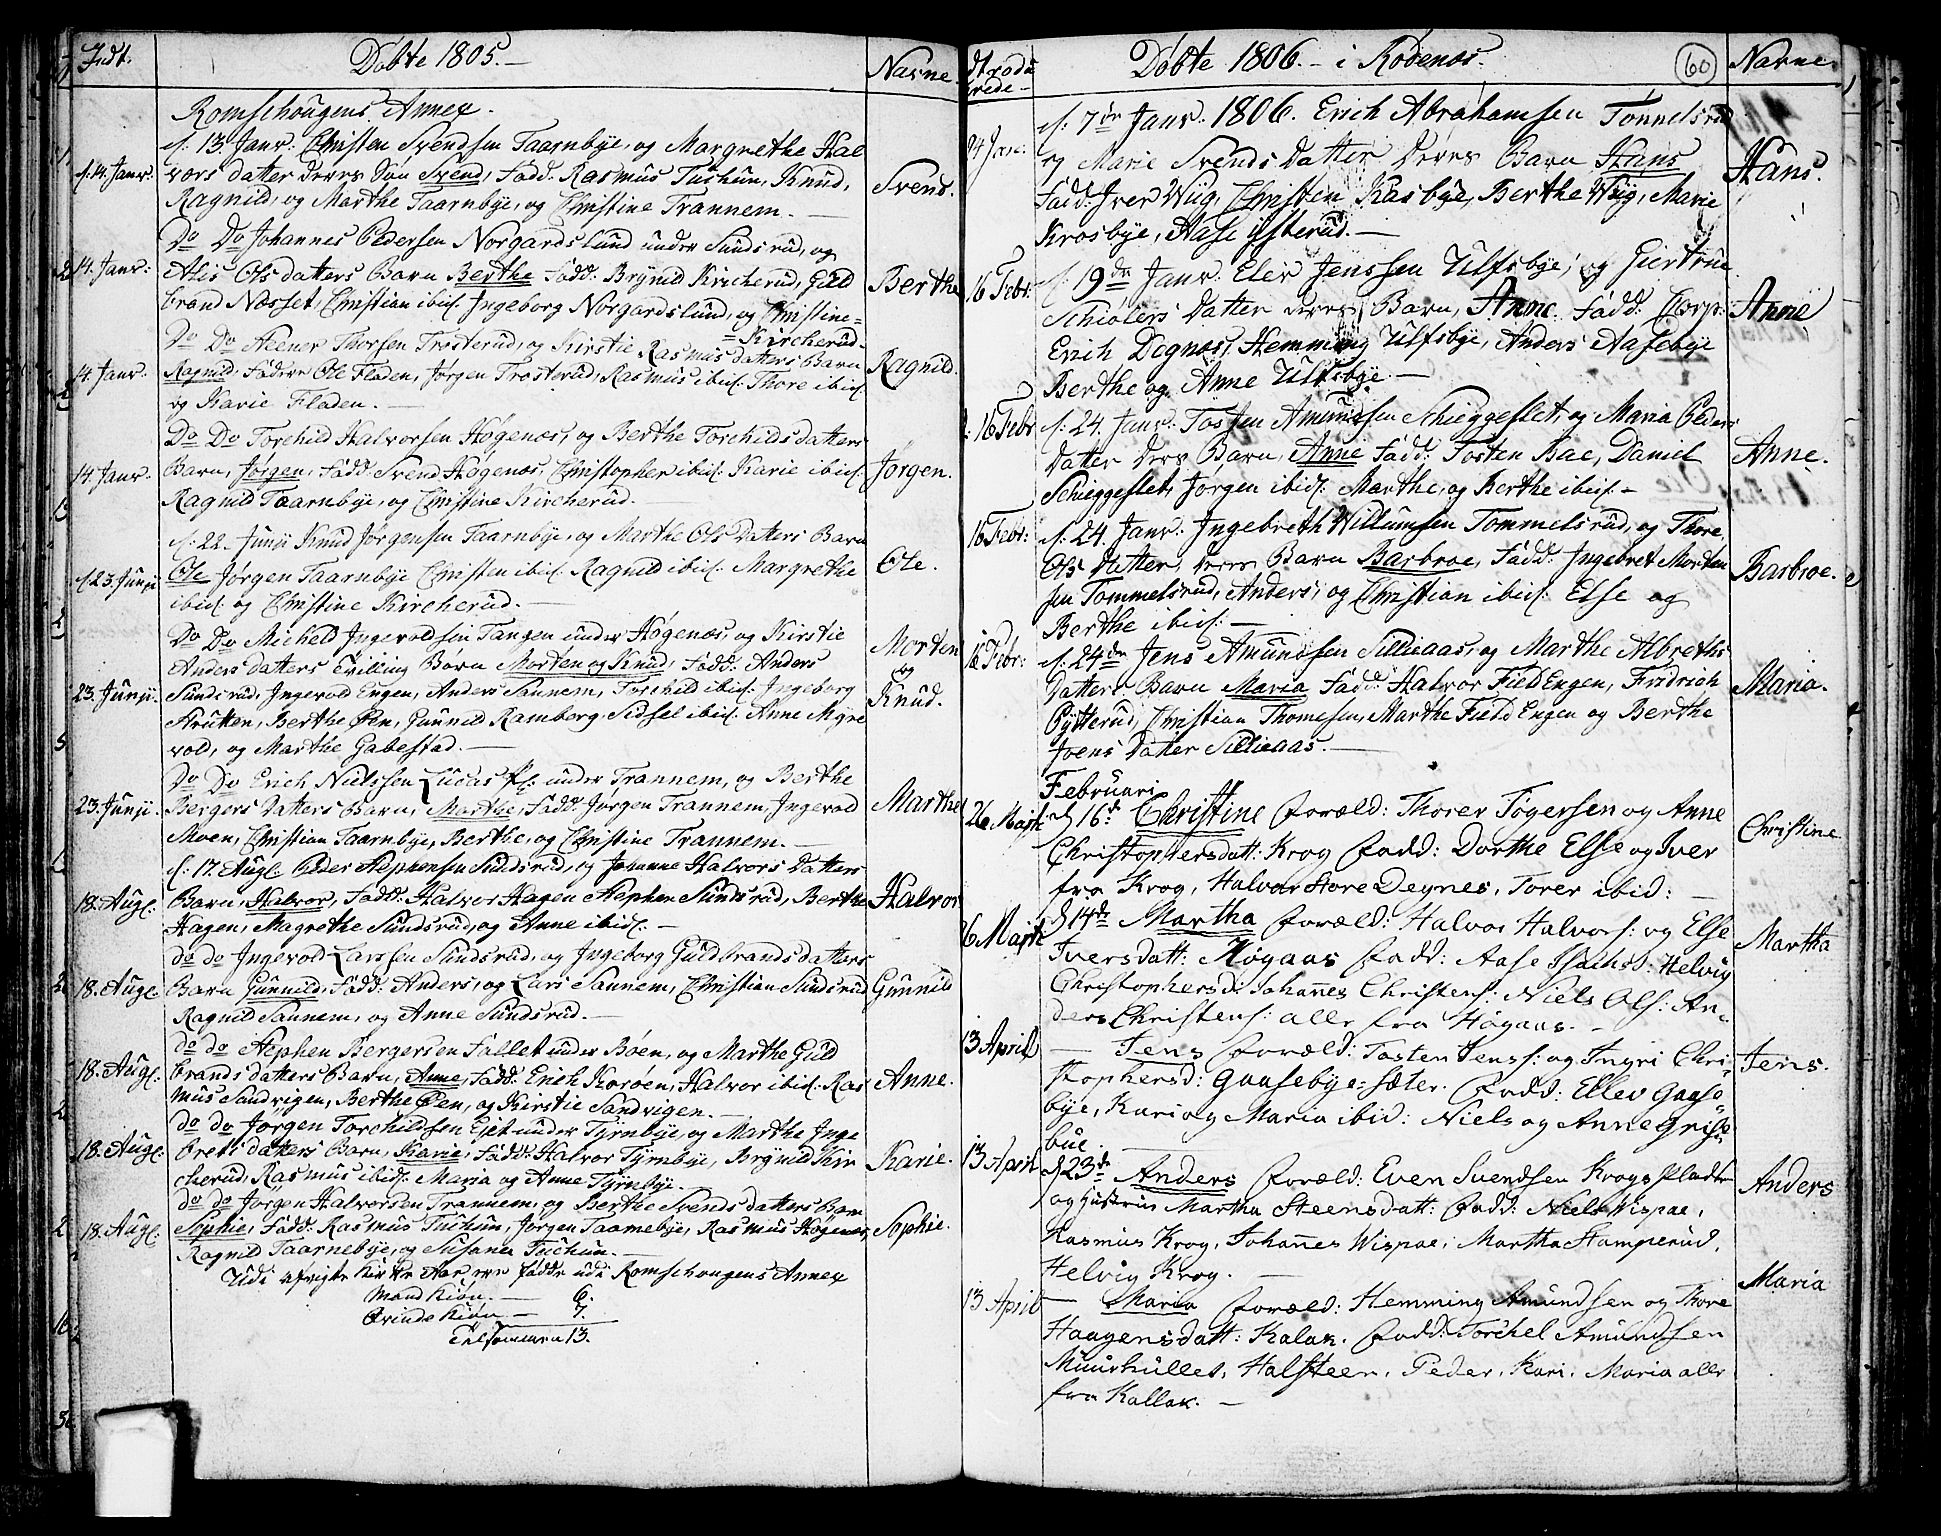 Indt.
Døbte 1805.
Navne.
Romschougens Annex.
d. 13. Janv. Christen Svendsen Taarnbye, og Margrethe Hal
d. 14. Janv.
vors datter deres Søn Svend, Fadd: Rasmus Tuchun, Knud,
Svend.
Ragnild, og Marthe Taarnbye, og Christine Trannem. —
Do Do Johannes Pedersen Norgardslund under Sundsrud, og
14. Janv:
Alis Ols datters Barn Berthe Fadd: Brynild Kircherud, Guld
Berthe
brand Næsset, Christian ibid. Ingeborg Norgardslund, og Christine=
=Kircherud.
Do Do Steener Thorsen Trosterud, og Kirstie Rasmus datters Barn
14. Janv.
Ragnild. Faddere Ole Fladen, Jørgen Trosterud, Rasmus ibid. Thore ibid.
Ragnild.
og Karie Fladen. —
Do Do Torchild Halvorsen Høgenæs, og Berthe Torchilds datters
14. Janv.
Barn, Jørgen, Fadd: Svend Høgenæs, Christopher ibid. Karie ibid.
Jørgen.
Ragnild Taarnbye, og Christine Kircherud.
d. 22. Junji Knud Jørgensen Taarnbye, og Marthe Ols Datters Barn
d. 23. Junji
Ole Jørgen Taarnbye Christen ibid. Ragnild ibid. Margrethe
Ole.
ibid. og Christine Kircherud. —
Do Do Micheld Ingevoldsen Tangen under Høgenæs, og Kirstie
Morten
Anders datters Tvilling Børn Morten og Knud, Fadd: Anders
og
23. Junji.
Sundsrud, Ingevod Engen, Anders Sannem, Torchild ibid. Ingeborg
Knud.
Strukken, Berthe Øen, Gunnild Ramberg, Sidsel ibid. Anne Myre
vold, og Marthe Gabestad. —
Do Do Erich Nielssen Lucas Pl: under Trannem, og Berthe
23. Junji.
Bergers Datters Barn, Marthe, Fadd: Jørgen Trannem, Ingevod
Marthe
Moen, Christian Taarnbye, Berthe, og Christine Trannem. —
d. 17. Aug. Peder Stephensen Sundsrud, og Johanne Halvors Datters
18. Aug.
Barn, Halvor, Fadd: Halvor Hagen Stephen Sundsrud, Berthe
Halvor
Hagen, Magrethe Sundsrud, og Anne ibid. —
do do Ingevod Larssen Sundsrud, og Ingeborg Guldbrands datters
18. Aug.
Barn Gunnild, Fadd: Anders, og Lars Sannem, Christian Sundsrud
Gunnild
Ragnild Sannem, og Anne Sundsrud. —
do do Stephen Bergersen Fallet under Bøen, og Marthe Guld
18. Aug.
brands datters Barn, Anne, Fadd: Erich Korøen, Halvor ibid. Ras
Anne.
mus Sandvigen, Berthe Øen, og Kirstie Sandvigen. —
do do Jørgen Torchildsen Ejet under Tyrnbye, og Marthe Inge
18. Aug.
brets datters Barn, Karie, Fadd: Halvor Tyrnbye, Brynild Kir
Karie.
cherud, Rasmus ibid. Maria og Anne Tyrnbye.
do do Jørgen Halvorsen Trannem, og Berthe Svends datters Barn
18. Aug.
Sophie, Fadd: Rasmus Tuchun, Jørgen Taarnebye, Rasmus Høgenæs,
Sophie.
Ragnild Taarnebye, og Susanne Tuchun. —
Udi afvigte Kirke Aar ere fødde udi Romschougens Annex
Mand Kiøn. — 6.
Qvinde Kiøn — 7.
Tilsammen 13.
Døbte 1806. — i Rødenæs.
60
Navne.
d. 7de Janv. 1806. Erich Abrahamsen Tønnelsrud
24 Jan:
og Marie Svends Datter deres Barn Hans
Hans.
Fadd: Iver Wiig, Christen Kasbye, Berthe Wiig, Marie
Krosbye, Aase Isterud. —
d. 19de Janv. Elev Jenssen Ulfsbye, og Giertrue
16 Febr:
Schiølers Datter deres Barn, Anne. Fadd: Corp:
Anne
Erich Degnæs, Hemming Ulfsbye, Anders Aasebye
Berthe og Anne Ulfsbye. —
16 Febr
d. 24. Janv. Tosten Amundsen Schieggeslet, og Maria Peders
Datter deres Barn, Anne Fadd: Tosten Bae, Daniel
Anne.
Schieggeslet, Jørgen ibid. Marthe, og Berthe ibid. —
16 Febr:
d. 24. Janv. Ingebreth Willumsen Tommelsrud, og Thore
Ols Datter, deres Barn Barbroe, Fadd: Ingebret Morten
Barbroe.
sen Tommelsrud, Anders, og Christian ibid. Else og
Berthe ibid. —
16 Febr:
d. 24de Jens Amundsen Sillieaas, og Marthe Albreths
Datters Barn Maria Fadd: Halvor Field Engen, Fridrich
Maria.
Pytterud, Christian Thomesen, Marthe Field Engen og Berthe
Joens Datter Sillieaas. —
Februari
26 Majti
d 16de Christine Foræld: Thorer Tøgersen og Anne
Christine
Christophersdatt: Krog Fadd: Dorthe Else og Iver
fra Krog, Halvor Store Deynes, Torer ibid: —
26 Majti
d 14de Martha Foræld: Halvor Halvors: og Else
Martha
Iversdatt: Høgaas Fadd: Aase Isachsd: Helvig
Christophersd: Johannes Christens: Niels Ols: An-
ders Christens: alle fra Høgaas. —
13 April
— Jens Foræld: Tosten Jenss: og Ingri Chri-
Jens.
stophersd: Gaasebye=sæter. Fadd: Ellev Gaase
bye, Kari og Maria ibid: Niels og Anne Griis-
bue.
13 April
d 23de Anders Foræld: Even Svendsen Krogs Pladsen
Anders
og Hustrue Martha Steensdatt: Fadd: Niels Wispae,
Rasmus Krog, Johannes Wispae, Martha Stomperud,
Helvig Krog. —
13 April
— Maria Foræld: Hemming Amundsen og Thore
Maria
Haagensdatt: Kalak. Fadd: Torchel Amundsen
Muurhullet, Halsteen, Peder, Kari, Maria alle
fra Kallak. —